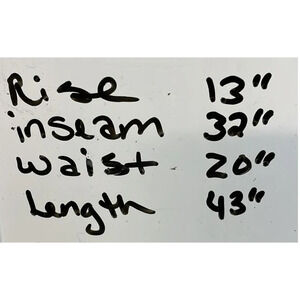 Rise 13"
inseam 32"
waist 20"
Length 43"